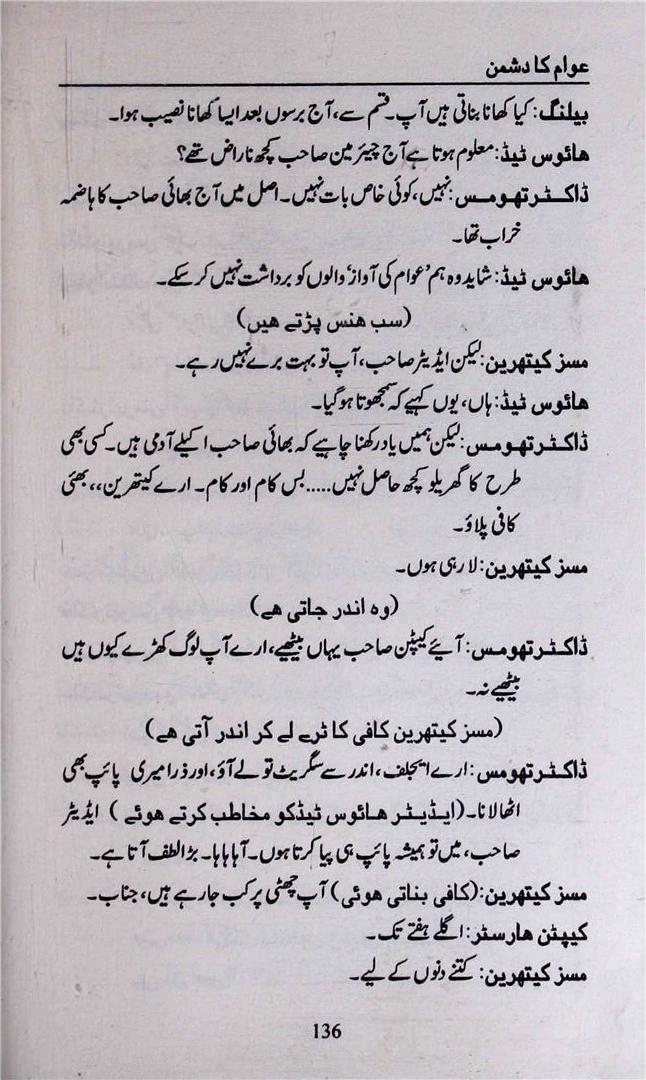 عوام کا دشمن
بیلنگ: کیا کھانا بناتی ہیں آپ۔ قسم سے، آج برسوں بعد ایسا کھانا نصیب ہوا۔
ھائوس ٹیڈ: معلوم ہوتا ہے آج چیئر مین صاحب کچھ ناراض تھے؟
ڈاکٹر تھومس: نہیں، کوئی خاص بات نہیں۔ اصل میں آج بھائی صاحب کا ہاضمہ
خراب تھا۔
ھائوس ٹیڈ: شاید وہ ہم ’عوام کی آواز‘ والوں کو برداشت نہیں کر سکے۔
(سب ھنس پڑتے ھیں)
مسز کیتھرین: لیکن ایڈیٹر صاحب، آپ تو بہت برے نہیں رہے۔
ھائوس ٹیڈ: ہاں، یوں کہیے کہ سمجھوتا ہو گیا۔
ڈاکٹر تھومس: لیکن ہمیں یاد رکھنا چاہیے کہ بھائی صاحب اکیلے آدمی ہیں۔ کسی بھی
طرح کا گھریلو کچھ حاصل نہیں..... بس کام اور کام۔ ارے کیتھرین،، بھئی
کافی پلاؤ۔
مسز کیتھرین: لا رہی ہوں۔
(وہ اندر جاتی ھے)
ڈاکٹر تھومس: آیئے کیپٹن صاحب یہاں بیٹھیے، ارے آپ لوگ کھڑے کیوں ہیں
بیٹھیے نہ۔
(مسز کیتھرین کافی کا ٹرے لے کر اندر آتی ھے)
ڈاکٹر تھومس: ارے ایجلف، اندر سے سگریٹ تو لے آؤ، اور ذرا میری پائپ بھی
اٹھا لانا۔ (ایڈیٹر ھائوس ٹیڈ کو مخاطب کرتے ھوئے) ایڈیٹر
صاحب، میں تو ہمیشہ پائپ ہی پیا کرتا ہوں۔ آہاہاہا۔ بڑا لطف آتا ہے۔
مسز کیتھرین: (کافی بناتی ھوئی) آپ چھٹی پر کب جا رہے ہیں، جناب۔
کیپٹن ھارسٹر: اگلے ہفتے تک۔
مسز کیتھرین: کتنے دنوں کے لیے۔
136